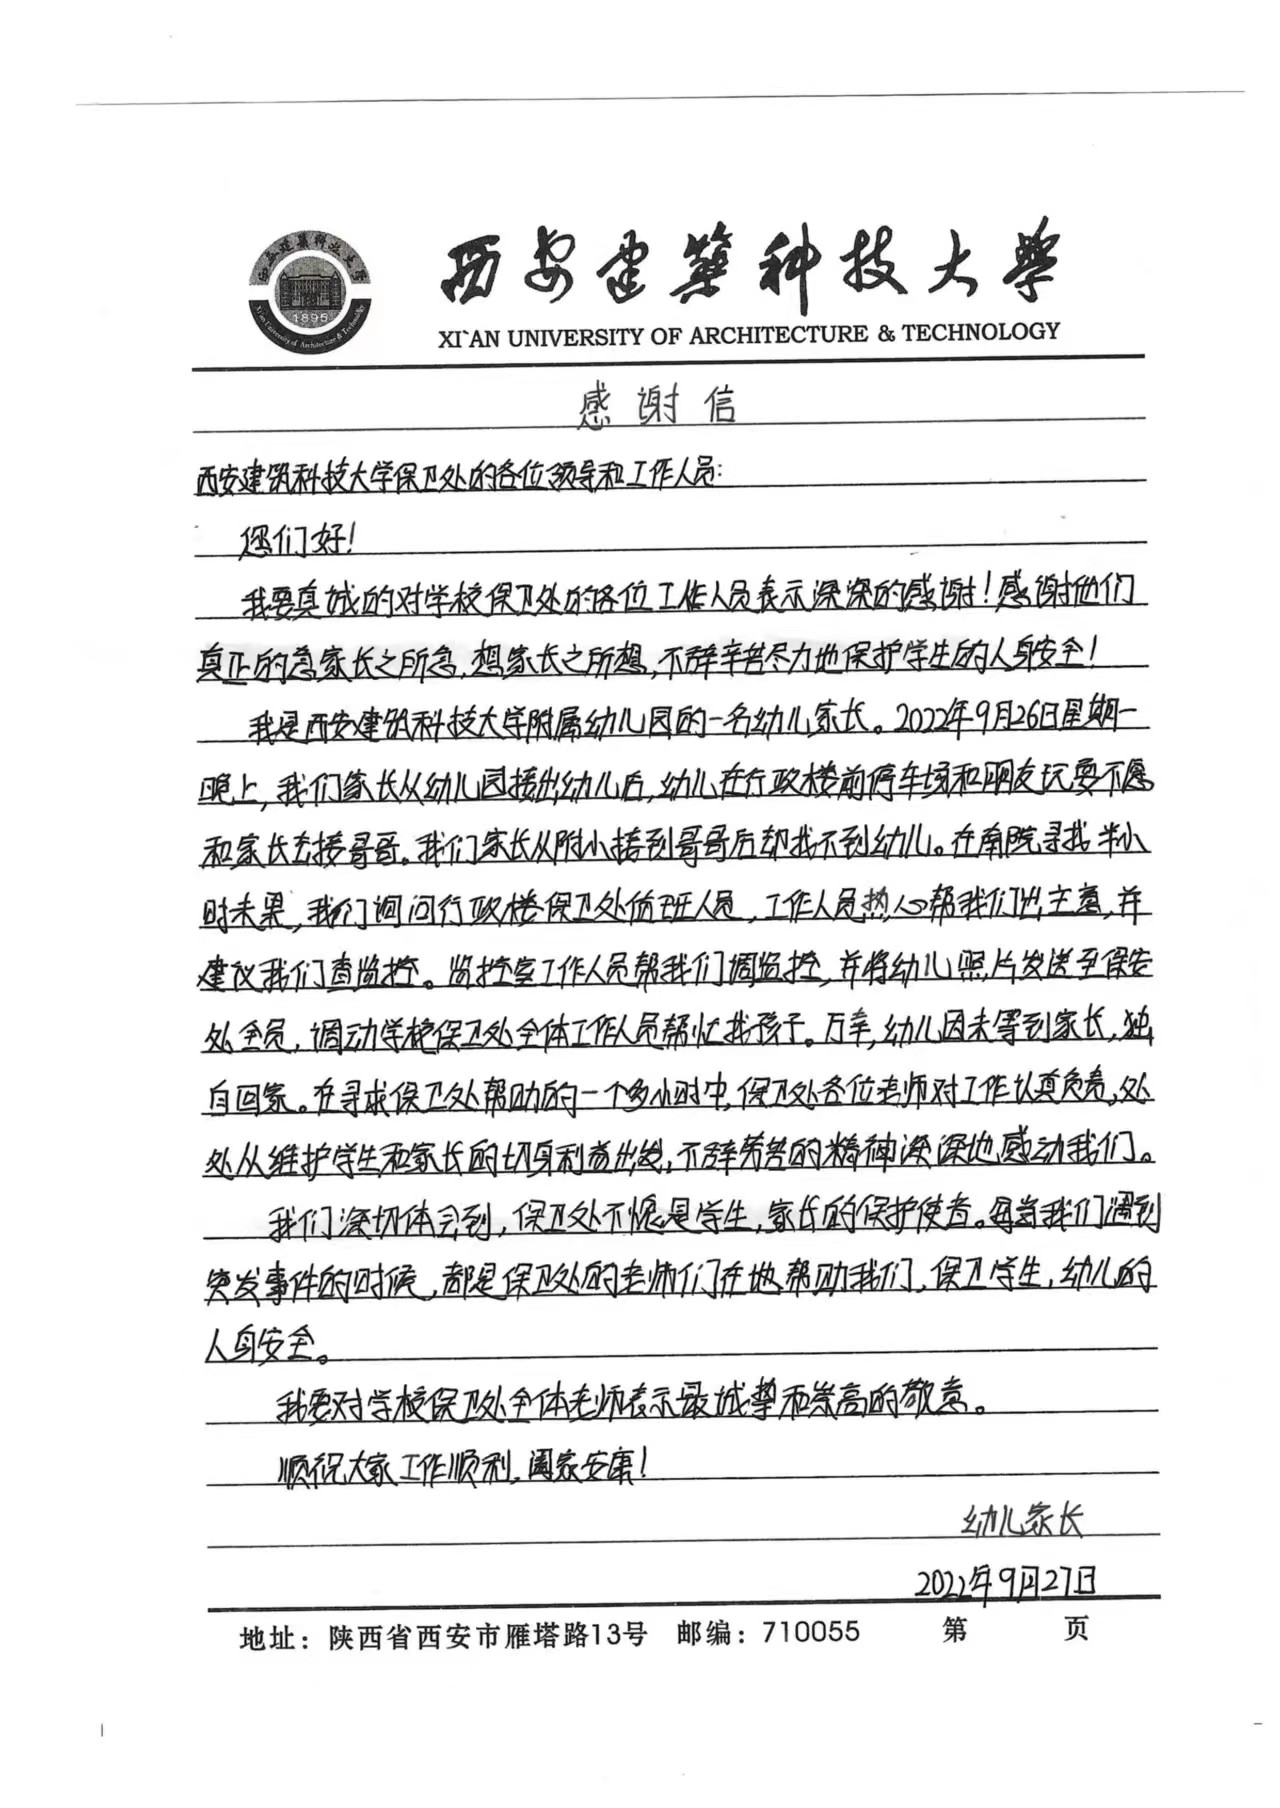 西安建筑科技大学
1895
Xi'an University of Architecture & Technology
西安建筑科技大学
XI`AN UNIVERSITY OF ARCHITECTURE & TECHNOLOGY
感谢信
西安建筑科技大学保卫处的各位领导和工作人员:
您们好!
我要真诚的对学校保卫处的各位工作人员表示深深的感谢!感谢他们
真正的急家长之所急,想家长之所想,不辞辛苦尽力地保护学生的人身安全!
我是西安建筑科技大学附属幼儿园的一名幼儿家长。2022年9月26日星期一
晚上,我们家长从幼儿园接出幼儿后,幼儿在行政楼前停车场和朋友玩耍不愿
和家长去接哥哥。我们家长从附小接到哥哥后却找不到幼儿。在南院寻找半小
时未果,我们询问行政楼保卫处值班人员,工作人员热心帮我们出主意,并
建议我们查监控。监控室工作人员帮我们调监控,并将幼儿照片发送至保安
处全员,调动学校保卫处全体工作人员帮忙找孩子。万幸,幼儿因未等到家长,独
自回家。在寻求保卫处帮助的一个多小时中,保卫处各位老师对工作认真负责,处
处从维护学生和家长的切身利益出发,不辞劳苦的精神深深地感动我们。
我们深切体会到,保卫处不愧是学生,家长的保护使者。每当我们遇到
突发事件的时候,都是保卫处的老师们在地帮助我们,保卫学生,幼儿的
人身安全。
我要对学校保卫处全体老师表示最诚挚和崇高的敬意。
顺祝大家工作顺利,阖家安康!
幼儿家长
2022年9月27日
地址:陕西省西安市雁塔路13号 邮编:710055 第 页